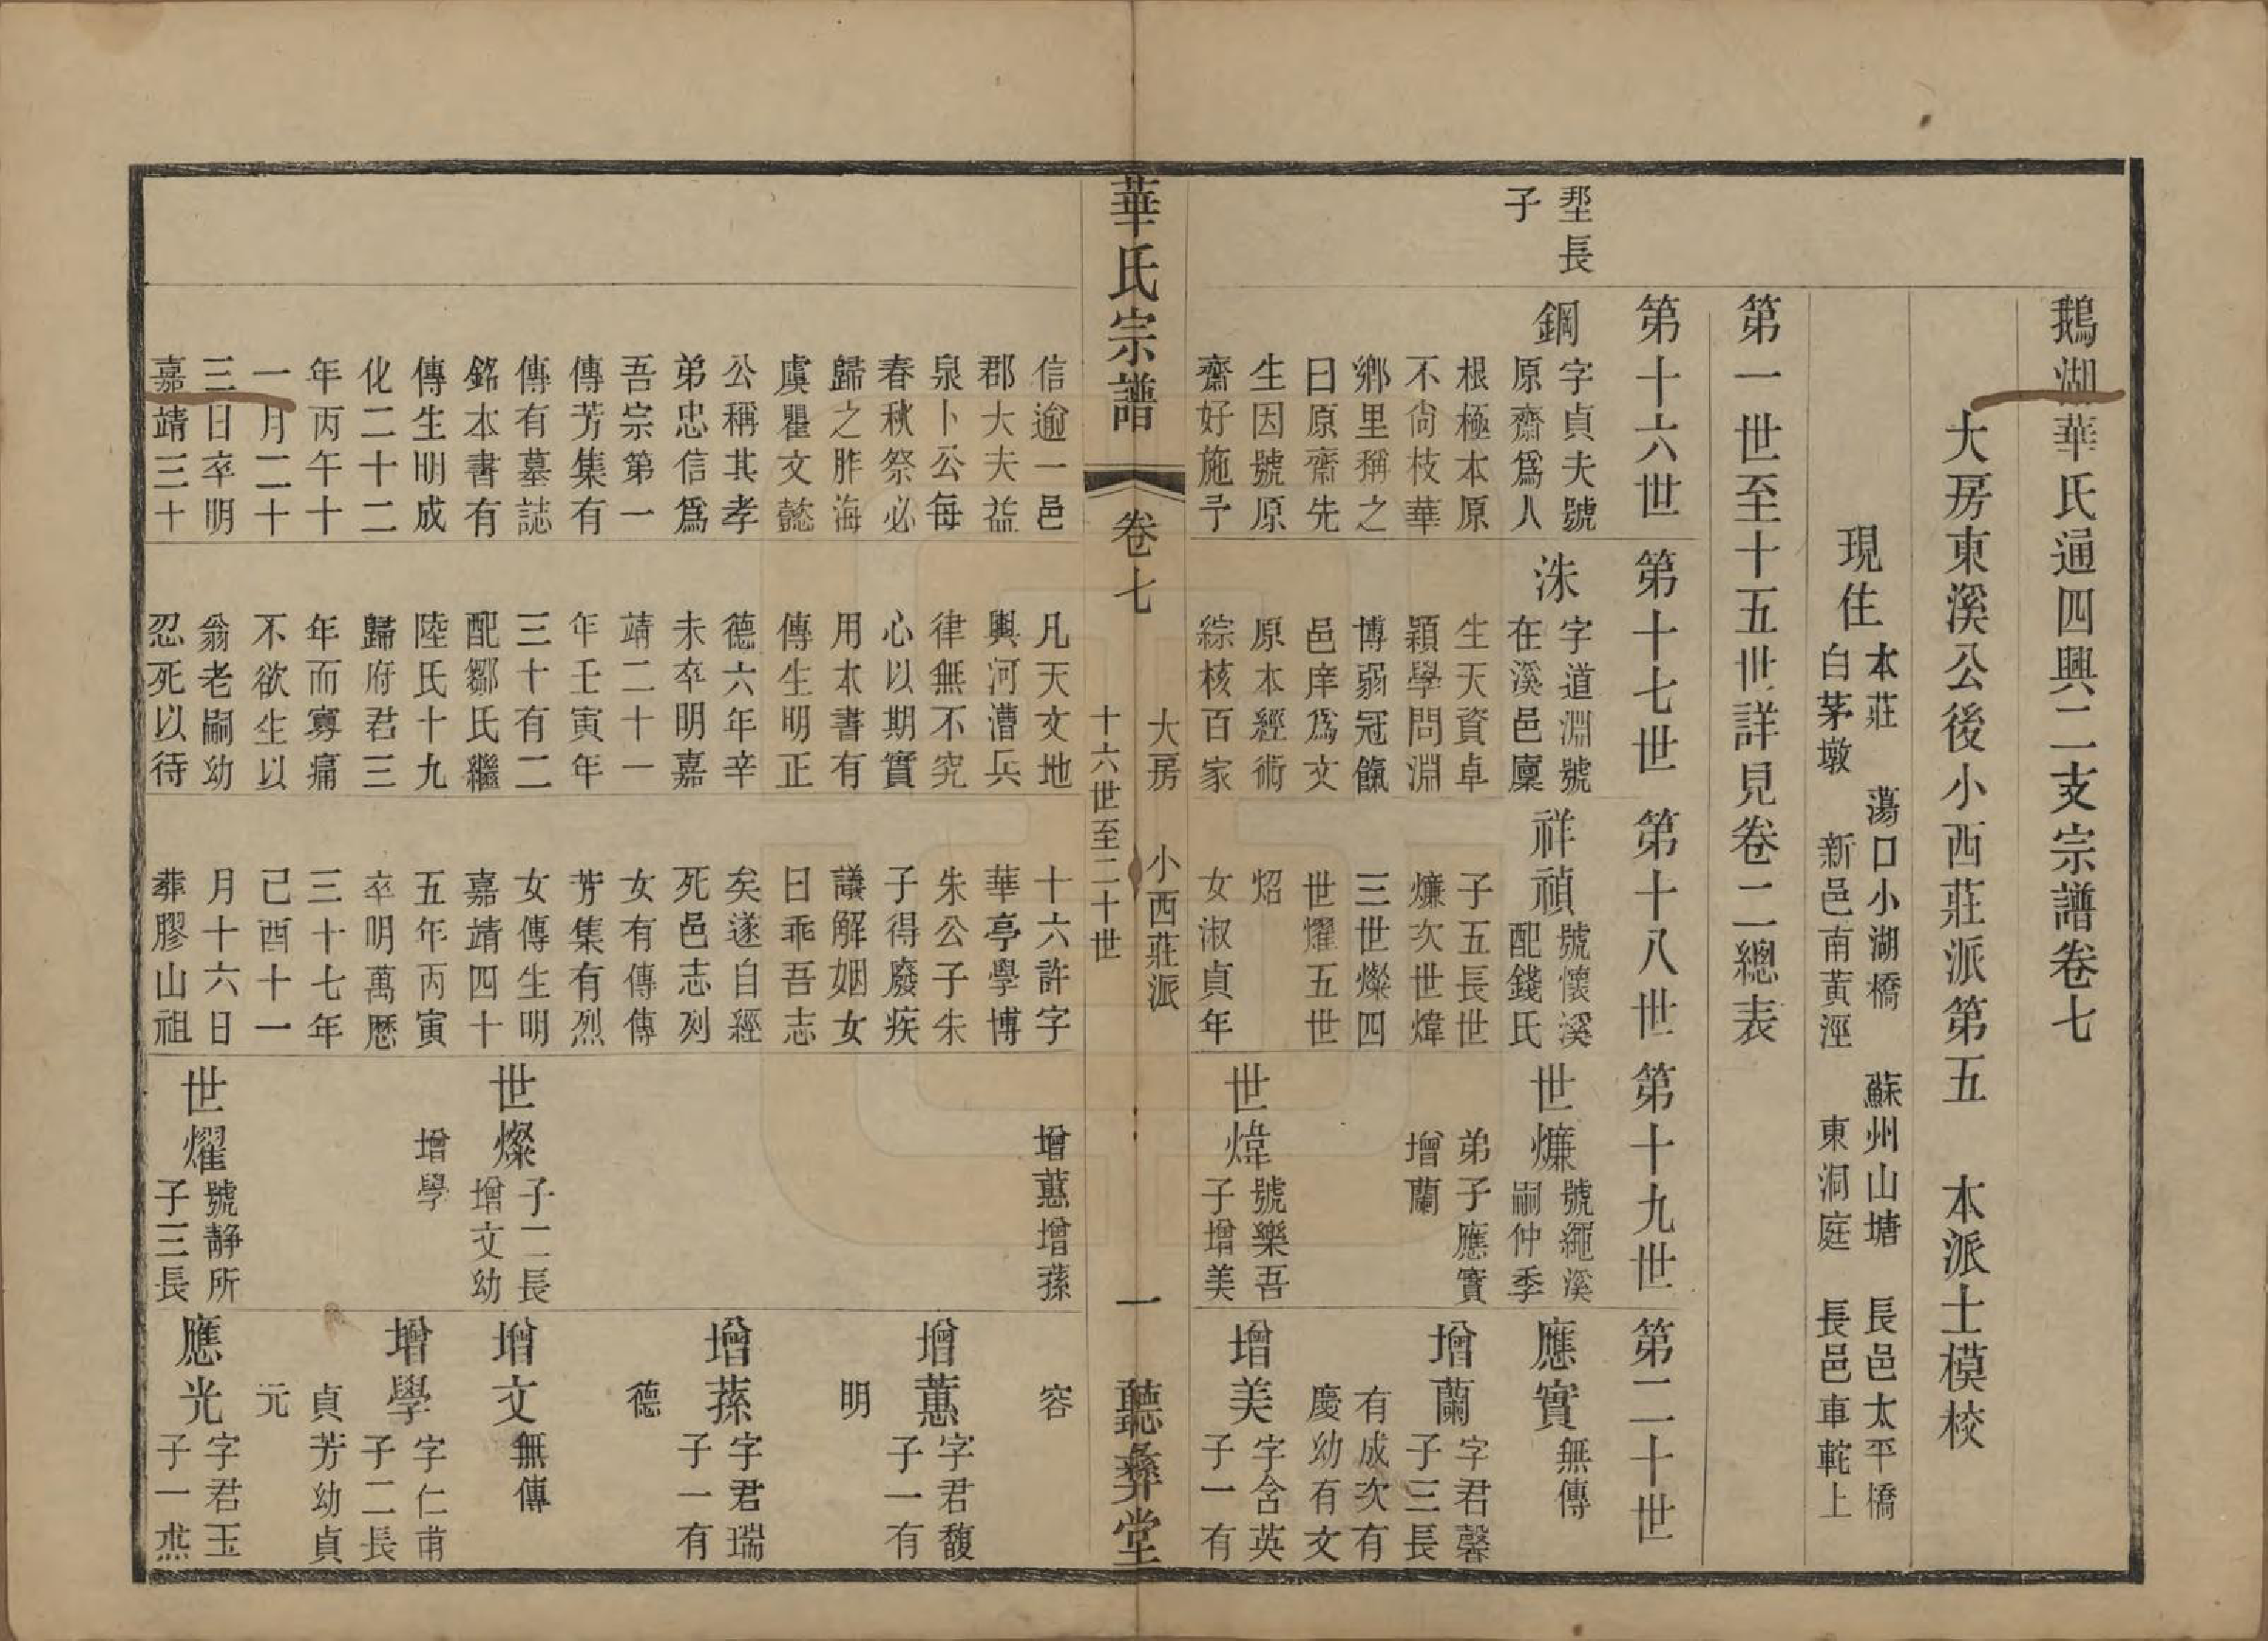 鵝湖華氏通四興二支宗譜卷七
大房東溪公後小西莊派第五　本派士模校
現住
本莊　蕩口小湖橋　蘇州山塘　長邑太平橋
白茅墩　新邑南黃涇　東洞庭　長邑車䡔上
第一世至十五世詳見卷二總表
第十六世
第十七世
第十八世
第十九世
第二十世
長
子
鋼
字貞夫號
原齋爲人
根極本原
不尙枝華
鄉里稱之
曰原齋先
生因號原
齋好施予
洙
字道淵號
在溪邑廩
生天資卓
穎學問淵
博弱冠餼
邑庠爲文
原本經術
綜核百家
祥禎
號懷溪
配錢氏
子五長世
燫次世煒
三世燦四
世燿五世
炤
女淑貞年
世燫
號繩溪
嗣仲季
弟子應實
增蘭
世煒
號樂吾
子增美
應實
無傳
增蘭
字君馨
子三長
有成次有
慶幼有文
增美
字含英
子一有
華氏宗譜
卷七
大房　小西莊派
十六世至二十世
一
聽彝堂
信逾一邑
郡大夫益
泉卜公每
春秋祭必
歸之胙海
虞瞿文懿
公稱其孝
弟忠信爲
吾宗第一
傳芳集有
傳有墓誌
銘本書有
傳生明成
化二十二
年丙午十
一月二十
三日卒明
嘉靖三十
凡天文地
輿河漕兵
律無不究
心以期實
用本書有
傳生明正
德六年辛
未卒明嘉
靖二十一
年壬寅年
三十有二
配鄒氏繼
陸氏十九
歸府君三
年而寡痛
不欲生以
翁老嗣幼
忍死以待
十六許字
華亭學博
朱公子朱
子得廢疾
議解姻女
曰乖吾志
矣遂自經
死邑志列
女有傳傳
芳集有烈
女傳生明
嘉靖四十
五年丙寅
卒明萬厯
三十七年
己酉十一
月十六日
葬膠山祖
增蕙增蓀
世燦
子二長
增文幼
增學
世燿
號靜所
子三長
容
增蕙
字君馥
子一有
明
增蓀
字君瑞
子一有
德
增文
無傳
增學
字仁甫
子二長
貞芳幼貞
元
應光
字君玉
子一烝